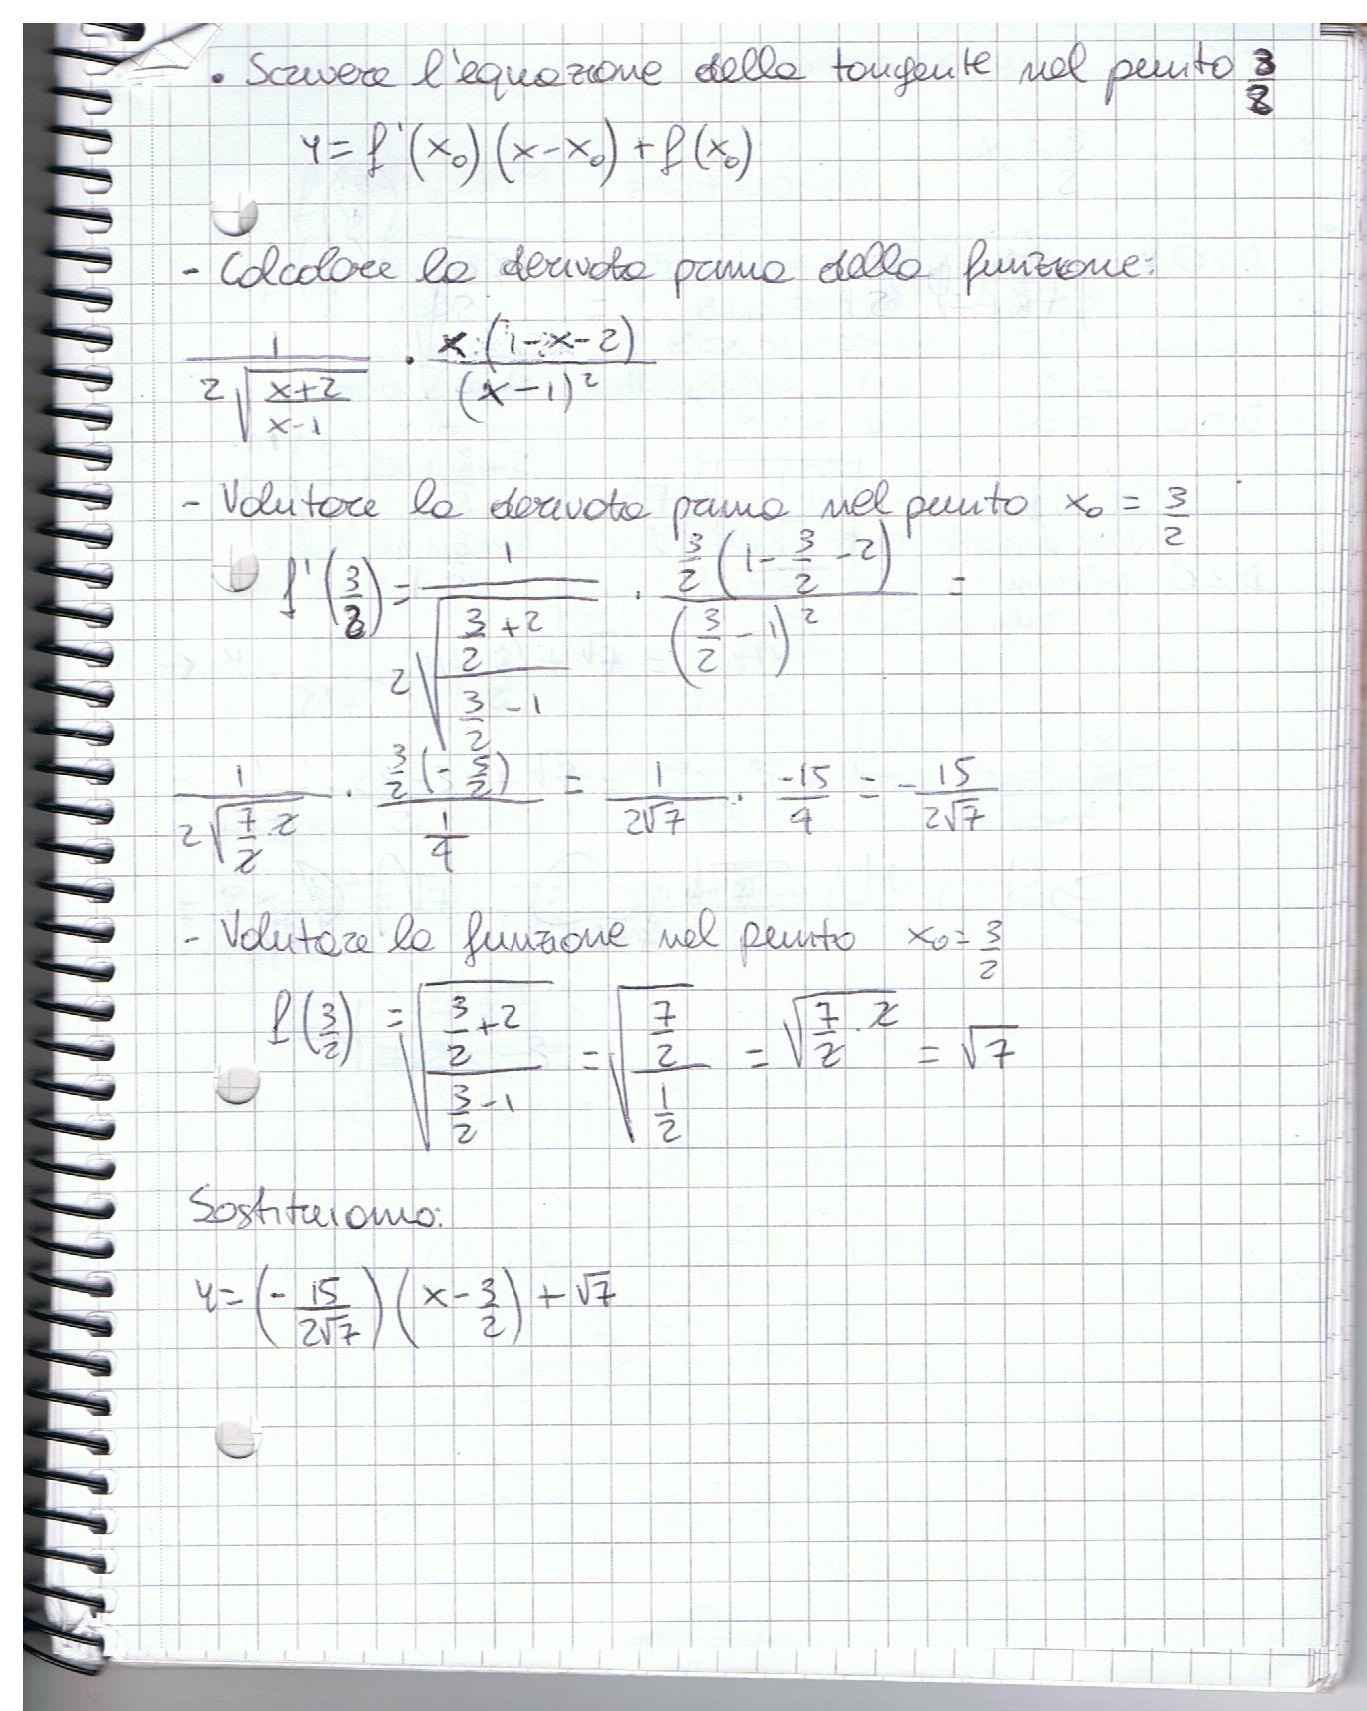 • Scrivere l'equazione della tangente nel punto 3/2
y = f'(x₀)(x-x₀) + f(x₀)
- Calcolare la derivata prima della funzione:
1/(2√((x+2)/(x-1))) · x·(1-x-2)/(x-1)²
- Valutare la derivata prima nel punto x₀ = 3/2
f'(3/2) = 1/(2√((3/2+2)/(3/2-1))) · (3/2(1-3/2-2))/(3/2-1)² =
1/(2√(7/2·2)) · (3/2(-5/2))/(1/4) = 1/(2√7) · -15/4 = -15/(2√7)
- Valutare la funzione nel punto x₀ = 3/2
f(3/2) = √((3/2+2)/(3/2-1)) = √((7/2)/(1/2)) = √(7/2·2) = √7
Sostituiamo:
y = (-15/(2√7))(x-3/2) + √7